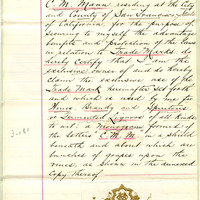 C. M. Mann, residing at the City
and County of San Francisco, State
of California, for the purpose of
securing to myself the advantage
benefits and protection of the laws
in relation to Trade Marks do
hereby Certify that I am the
exclusive owner of and do hereby
claim the exclusive use of the
Trade Mark hereinafter set forth
and which is used by me for
Wines Brandy and Spirituous
or Fermented Liquors of all kinds
to wit: a Monogram formed of
the letters C. M. M. in a shield
beneath and about which are
bunches of grapes upon the
vines, as shown in the annexed
copy thereof